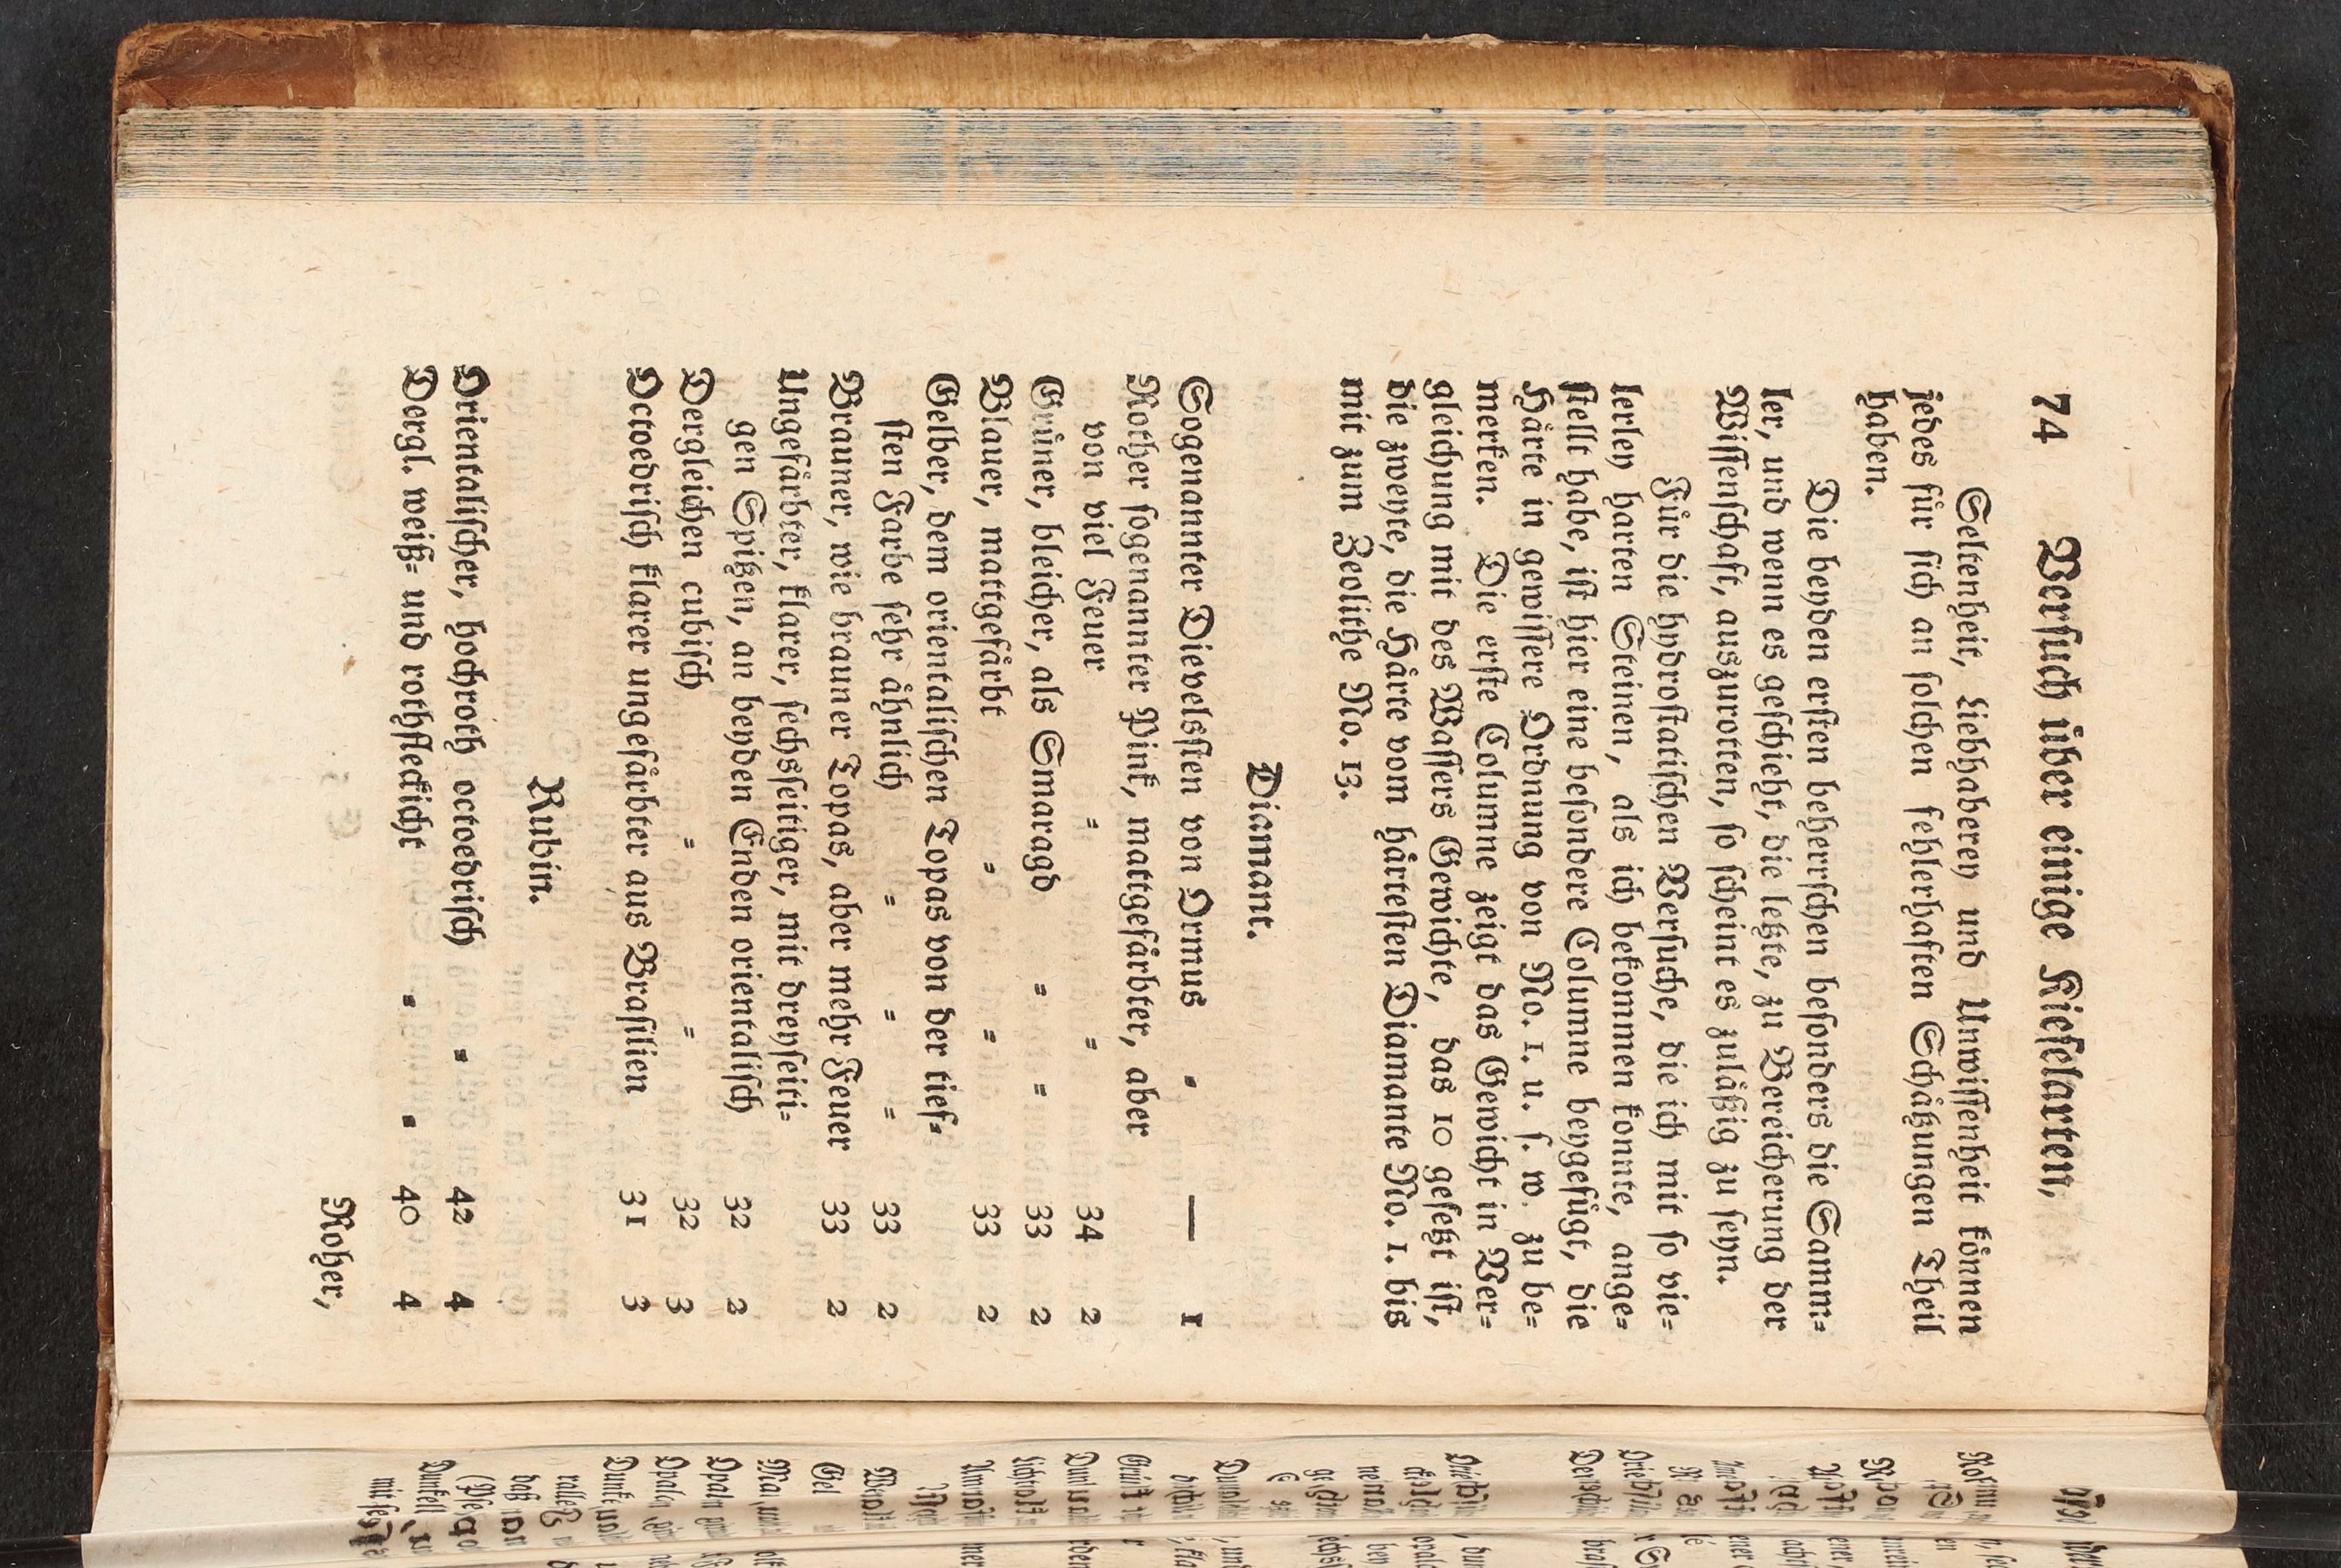 74 Versuch über einige Kieselarten,
Seltenheit, Liebhaberey und Unwissenheit können
jedes für sich an solchen fehlerhaften Schätzungen Theil
haben.
Die beyden ersten beherrschen besonders die Samm=
ler, und wenn es geschieht, die letzte, zu Bereicherung der
Wissenschaft, auszurotten, so scheint es zuläßig zu seyn.
Für die hydrostatischen Versuche, die ich mit so vie=
lerley harten Steinen, als ich bekommen konnte, ange=
stellt habe, ist hier eine besondere Columne beygefügt, die
Härte in gewissere Ordnung von No. 1. u. s. w. zu be=
merken. Die erste Columne zeigt das Gewicht in Ver=
gleichung mit des Wassers Gewichte, das 10 gesetzt ist,
die zweyte, die Härte vom härtesten Diamante No. 1. bis
mit zum Zeolithe No. 13.
Diamant.
Sogenannter Dievelsten von Ormus = — 1
Rother sogenannter Pink, mattgefärbter, aber
von viel Feuer = = 34 2
Grüner, bleicher, als Smaragd = = 33 2
Blauer, mattgefärbt = = 33 2
Gelber, dem orientalischen Topas von der tief=
sten Farbe sehr ähnlich = = = 33 2
Brauner, wie brauner Topas, aber mehr Feuer 33 2
Ungefärbter, klarer, sechsseitiger, mit dreyseiti=
gen Spitzen, an beyden Enden orientalisch 32 2
Dergleichen cubisch = = 32 3
Octoedrisch klarer ungefärbter aus Brasilien 31 3
Rubin.
Orientalischer, hochroth octoedrisch = 42 4
Dergl. weiß= und rothfleckicht = = 40 4
Roher,